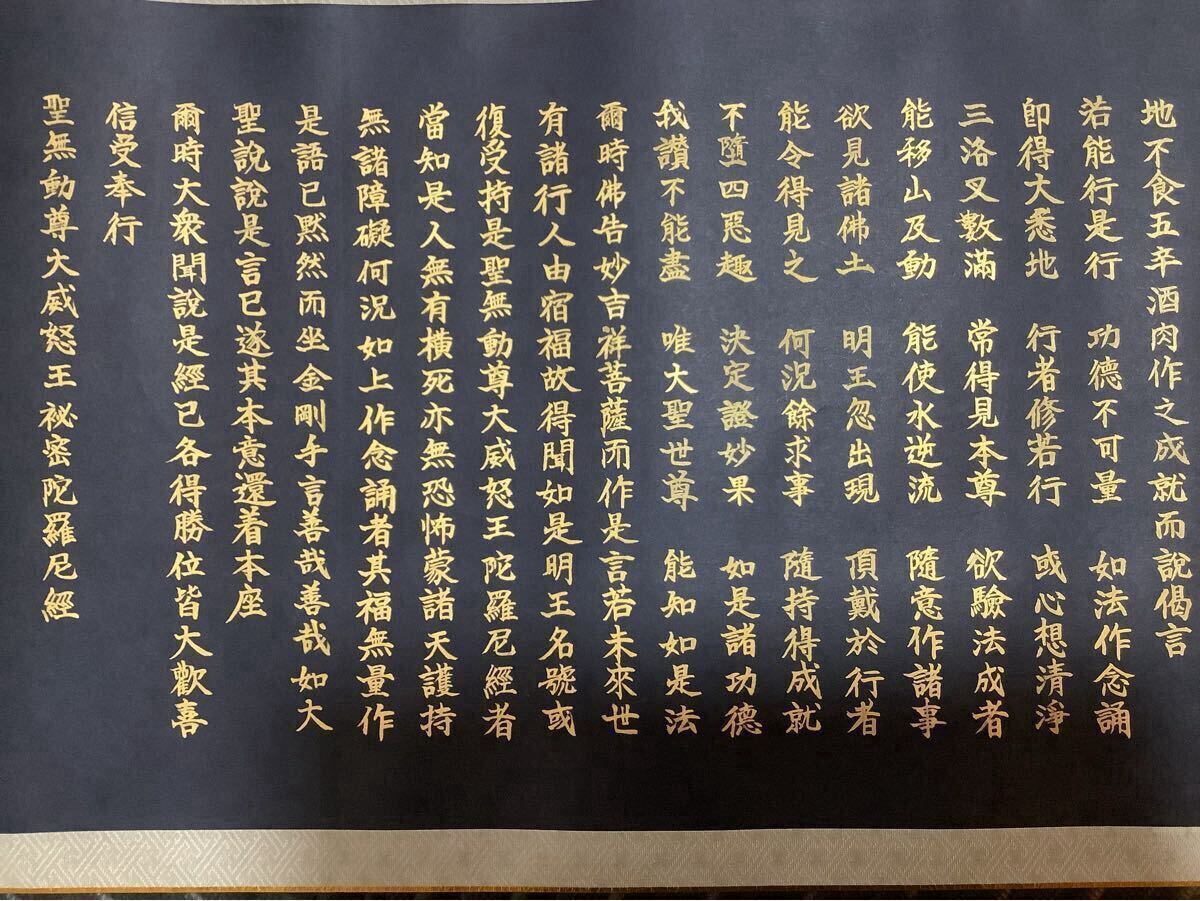 地不食五辛酒肉作之成就而說偈言
若能行是行 功德不可量 如法作念誦
即得大悉地 行者修若行 或心想清淨
三洛叉數滿 常得見本尊 欲驗法成者
能移山及動 能使水逆流 隨意作諸事
欲見諸佛土 明王忽出現 頂戴於行者
能令得見之 何況餘求事 隨持得成就
不墮四惡趣 決定證妙果 如是諸功德
我讚不能盡 唯大聖世尊 能知如是法
爾時佛告妙吉祥菩薩而作是言若未來世
有諸行人由宿福故得聞如是明王名號或
復受持是聖無動尊大威怒王陀羅尼經者
當知是人無有橫死亦無恐怖蒙諸天護持
無諸障礙何況如上作念誦者其福無量作
是語已默然而坐金剛手言善哉善哉如大
聖說說是言已遂其本意還着本座
爾時大衆聞說是經已各得勝位皆大歡喜
信受奉行
聖無動尊大威怒王祕密陀羅尼經